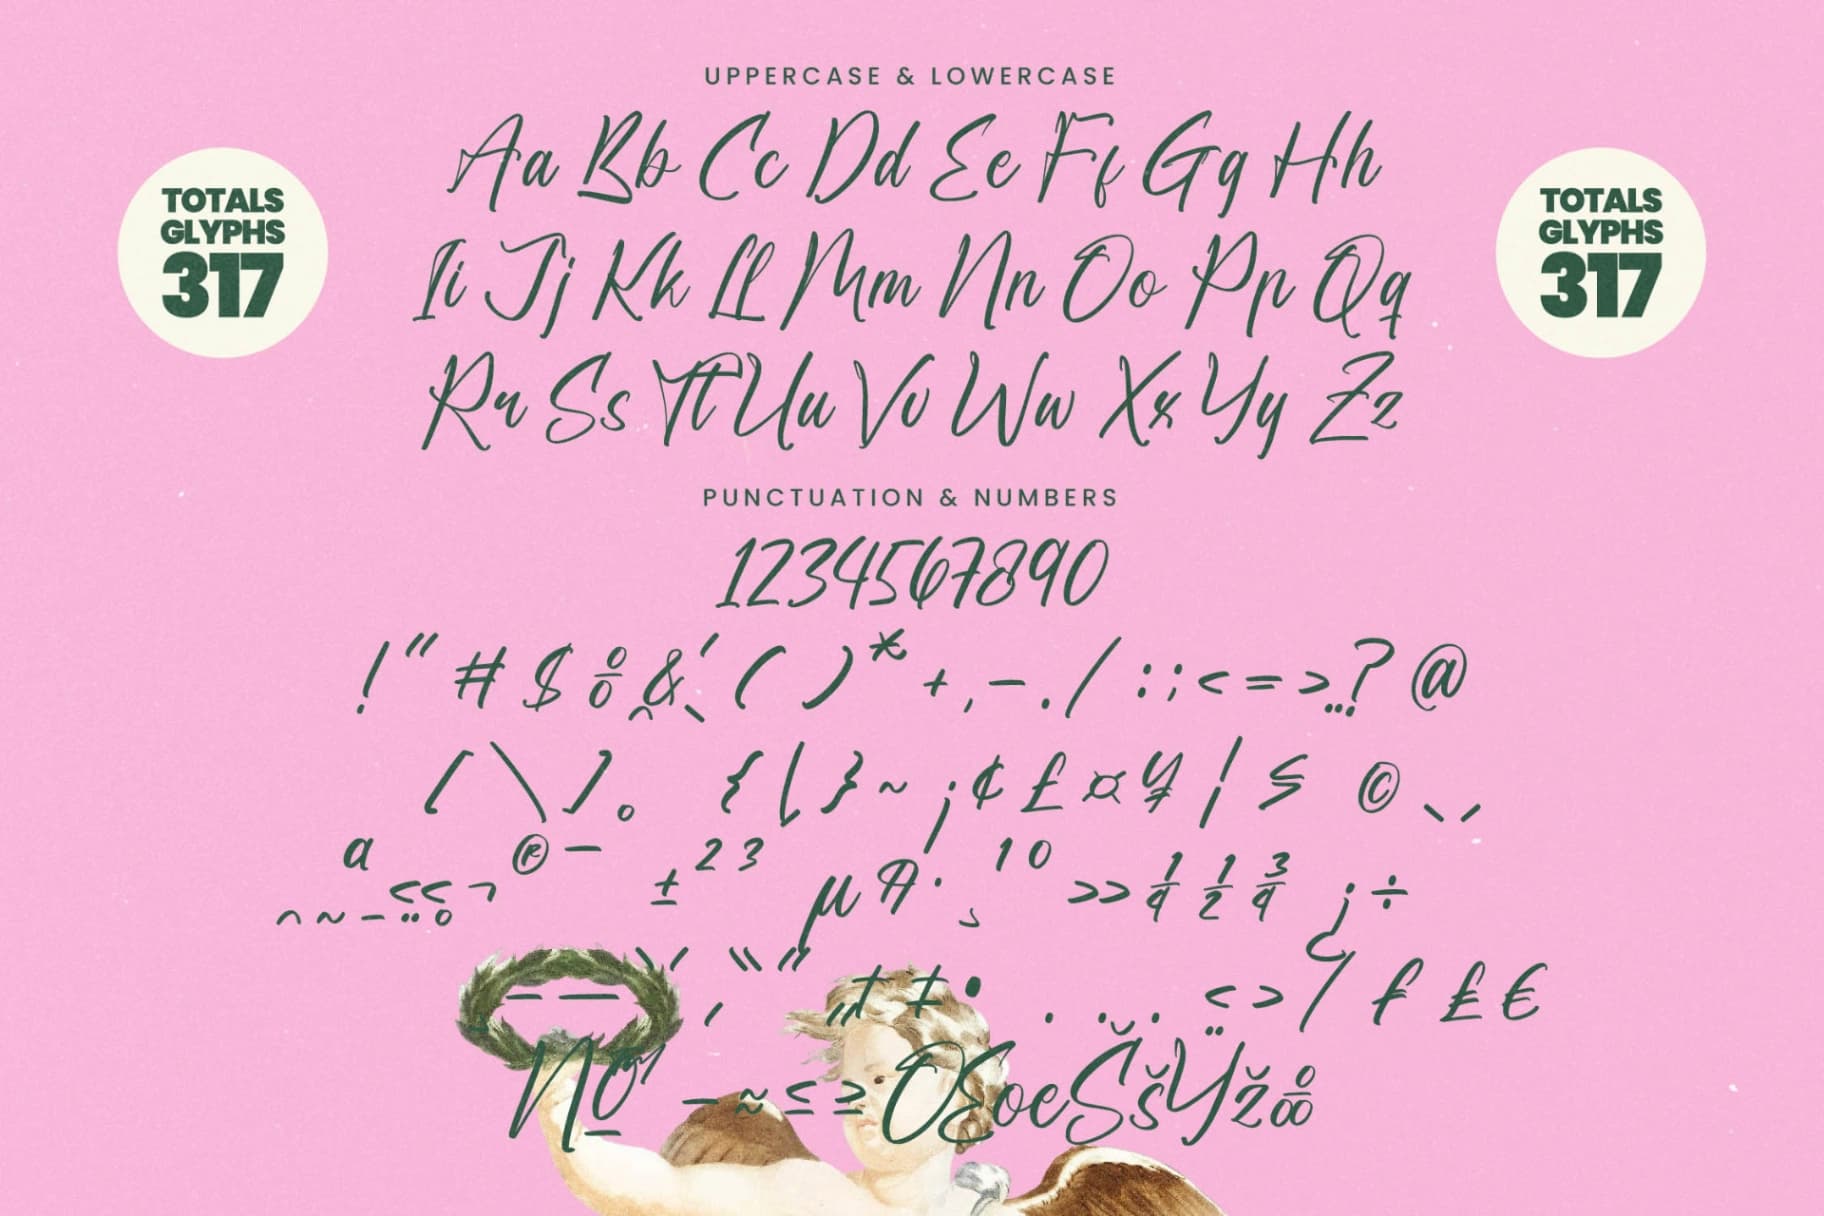 UPPERCASE & LOWERCASE
Aa Bb Cc Dd Ee Ff Gg Hh
TOTALS
GLYPHS
317
TOTALS
GLYPHS
317
Ii Jj Kk Ll Mm Nn Oo Pp Qq
Rr Ss Tt Uu Vv Ww Xx Yy Zz
PUNCTUATION & NUMBERS
1234567890
! " # $ % & ' ( ) * + , - . / : ; < = > ? @
[ \ ] { | } ~ ¡ ¢ £ ¤ ¥ ¦ § ©
ª « ¬ ® ¯ ± ² ³ µ ¶ · ¸ ¹ º » ¼ ½ ¾ ¿ ÷
– — ‘ ’ ‚ “ ” „ † ‡ • … ‹ › ⁄ ƒ £ €
№ ™ − ≈ ≤ ≥ Œ œ Š š Ÿ ž ‰